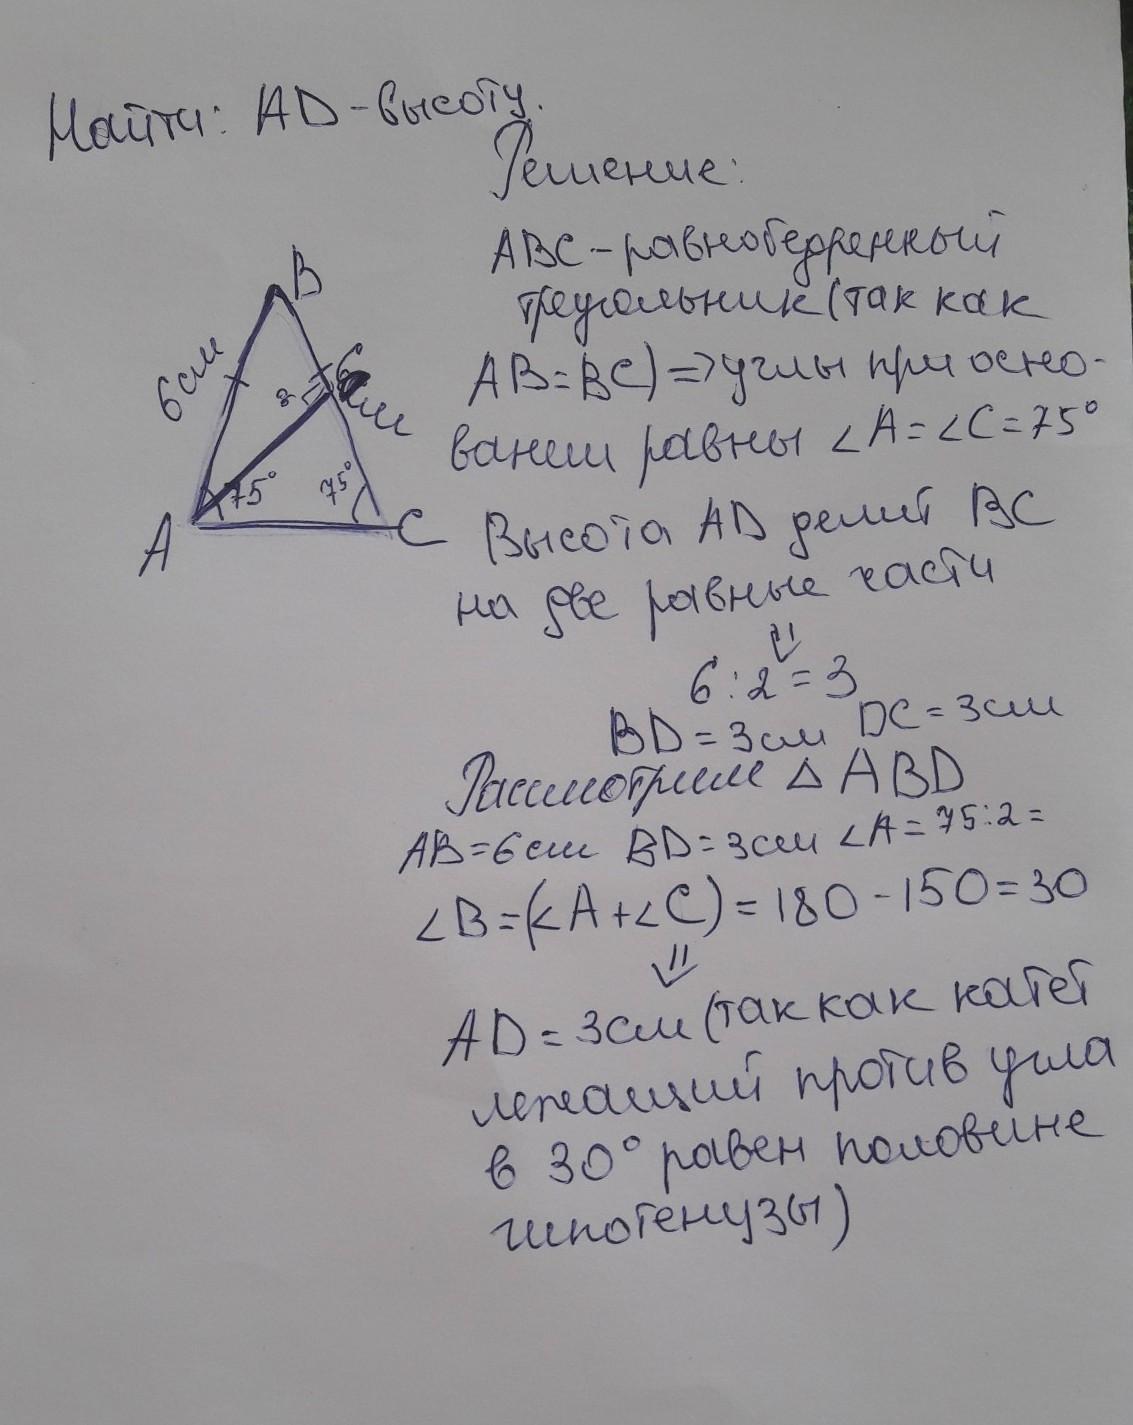 Найти: AD-высоту.
Решение:
ABC-равнобедренный
треугольник (так как
AB=BC) => углы при осно-
вании равны ∠A=∠C=75°
Высота AD делит BC
на две равные части
⇓
6:2=3
BD=3см DC=3см
Рассмотрим △ABD
AB=6см BD=3см ∠A=75:2=
∠B=(∠A+∠C)=180-150=30
⇓
AD=3см (так как катет
лежащий против угла
в 30° равен половине
гипотенузы)
B
6см
6см
75°
75°
A
C